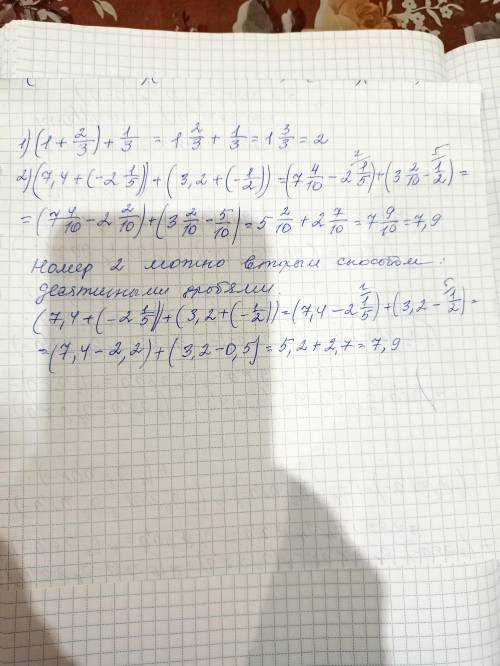 1) (1 + 2/3) + 1/3 = 1 2/3 + 1/3 = 1 3/3 = 2
2) (7,4 + (-2 1/5)) + (3,2 + (-1/2)) = (7 4/10 - 2 1/5) + (3 2/10 - 1/2) =
= (7 4/10 - 2 2/10) + (3 2/10 - 5/10) = 5 2/10 + 2 7/10 = 7 9/10 = 7,9
Номер 2 можно вторым способом:
десятичными дробями
(7,4 + (-2 1/5)) + (3,2 + (-1/2)) = (7,4 - 2 1/5) + (3,2 - 1/2) =
= (7,4 - 2,2) + (3,2 - 0,5) = 5,2 + 2,7 = 7,9